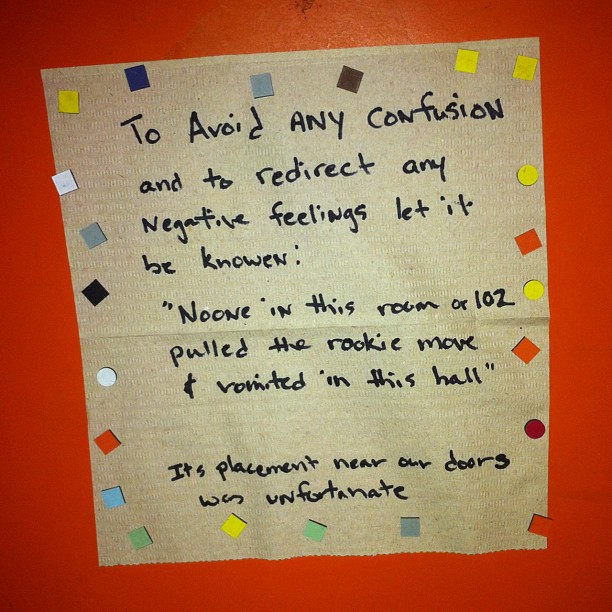 To Avoid ANY CONfusiON
and to redirect any
Negative feelings let it
be knowen:
"Noone in this room or 102
pulled the rookie move
& vomited in this hall"
Its placement near our doors
was unfortunate